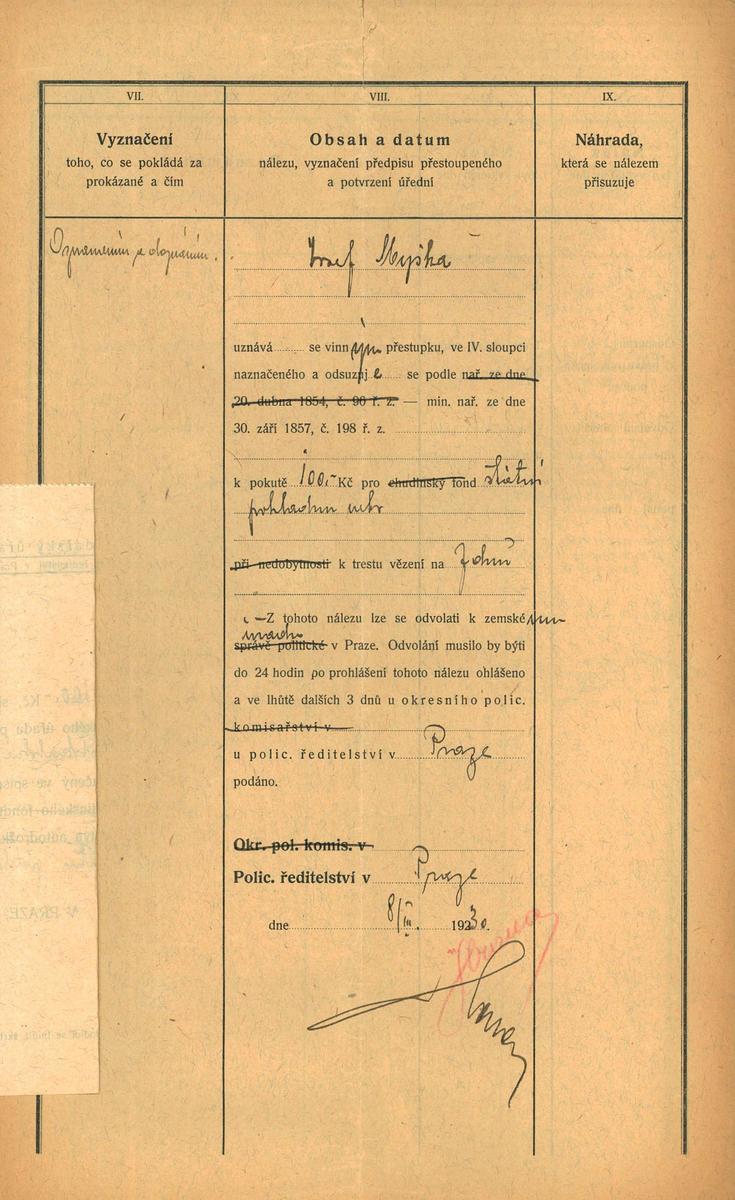 VII.
Vyznačení
toho, co se pokládá za
prokázané a čím
VIII.
Obsah a datum
nálezu, vyznačení předpisu přestoupeného
a potvrzení úřední
IX.
Náhrada,
která se nálezem
přisuzuje
Oznámením a doznáním.
Josef Myška
uznává se vinným přestupku, ve IV. sloupci
naznačeného a odsuzuje se podle nař. ze dne
20. dubna 1854, č. 96 ř. z. — min. nař. ze dne
30. září 1857, č. 198 ř. z.
k pokutě 100.- Kč pro chudinský fond státní
pokladnu
při nedobytnosti k trestu vězení na dnů
Z tohoto nálezu lze se odvolati k zemskému
úřadu
správě politické v Praze. Odvolání musilo by býti
do 24 hodin po prohlášení tohoto nálezu ohlášeno
a ve lhůtě dalších 3 dnů u okresního polic.
komisařství v
u polic. ředitelství v Praze
podáno.
Okr. pol. komis. v
Polic. ředitelství v Praze
dne 8/III. 1930.